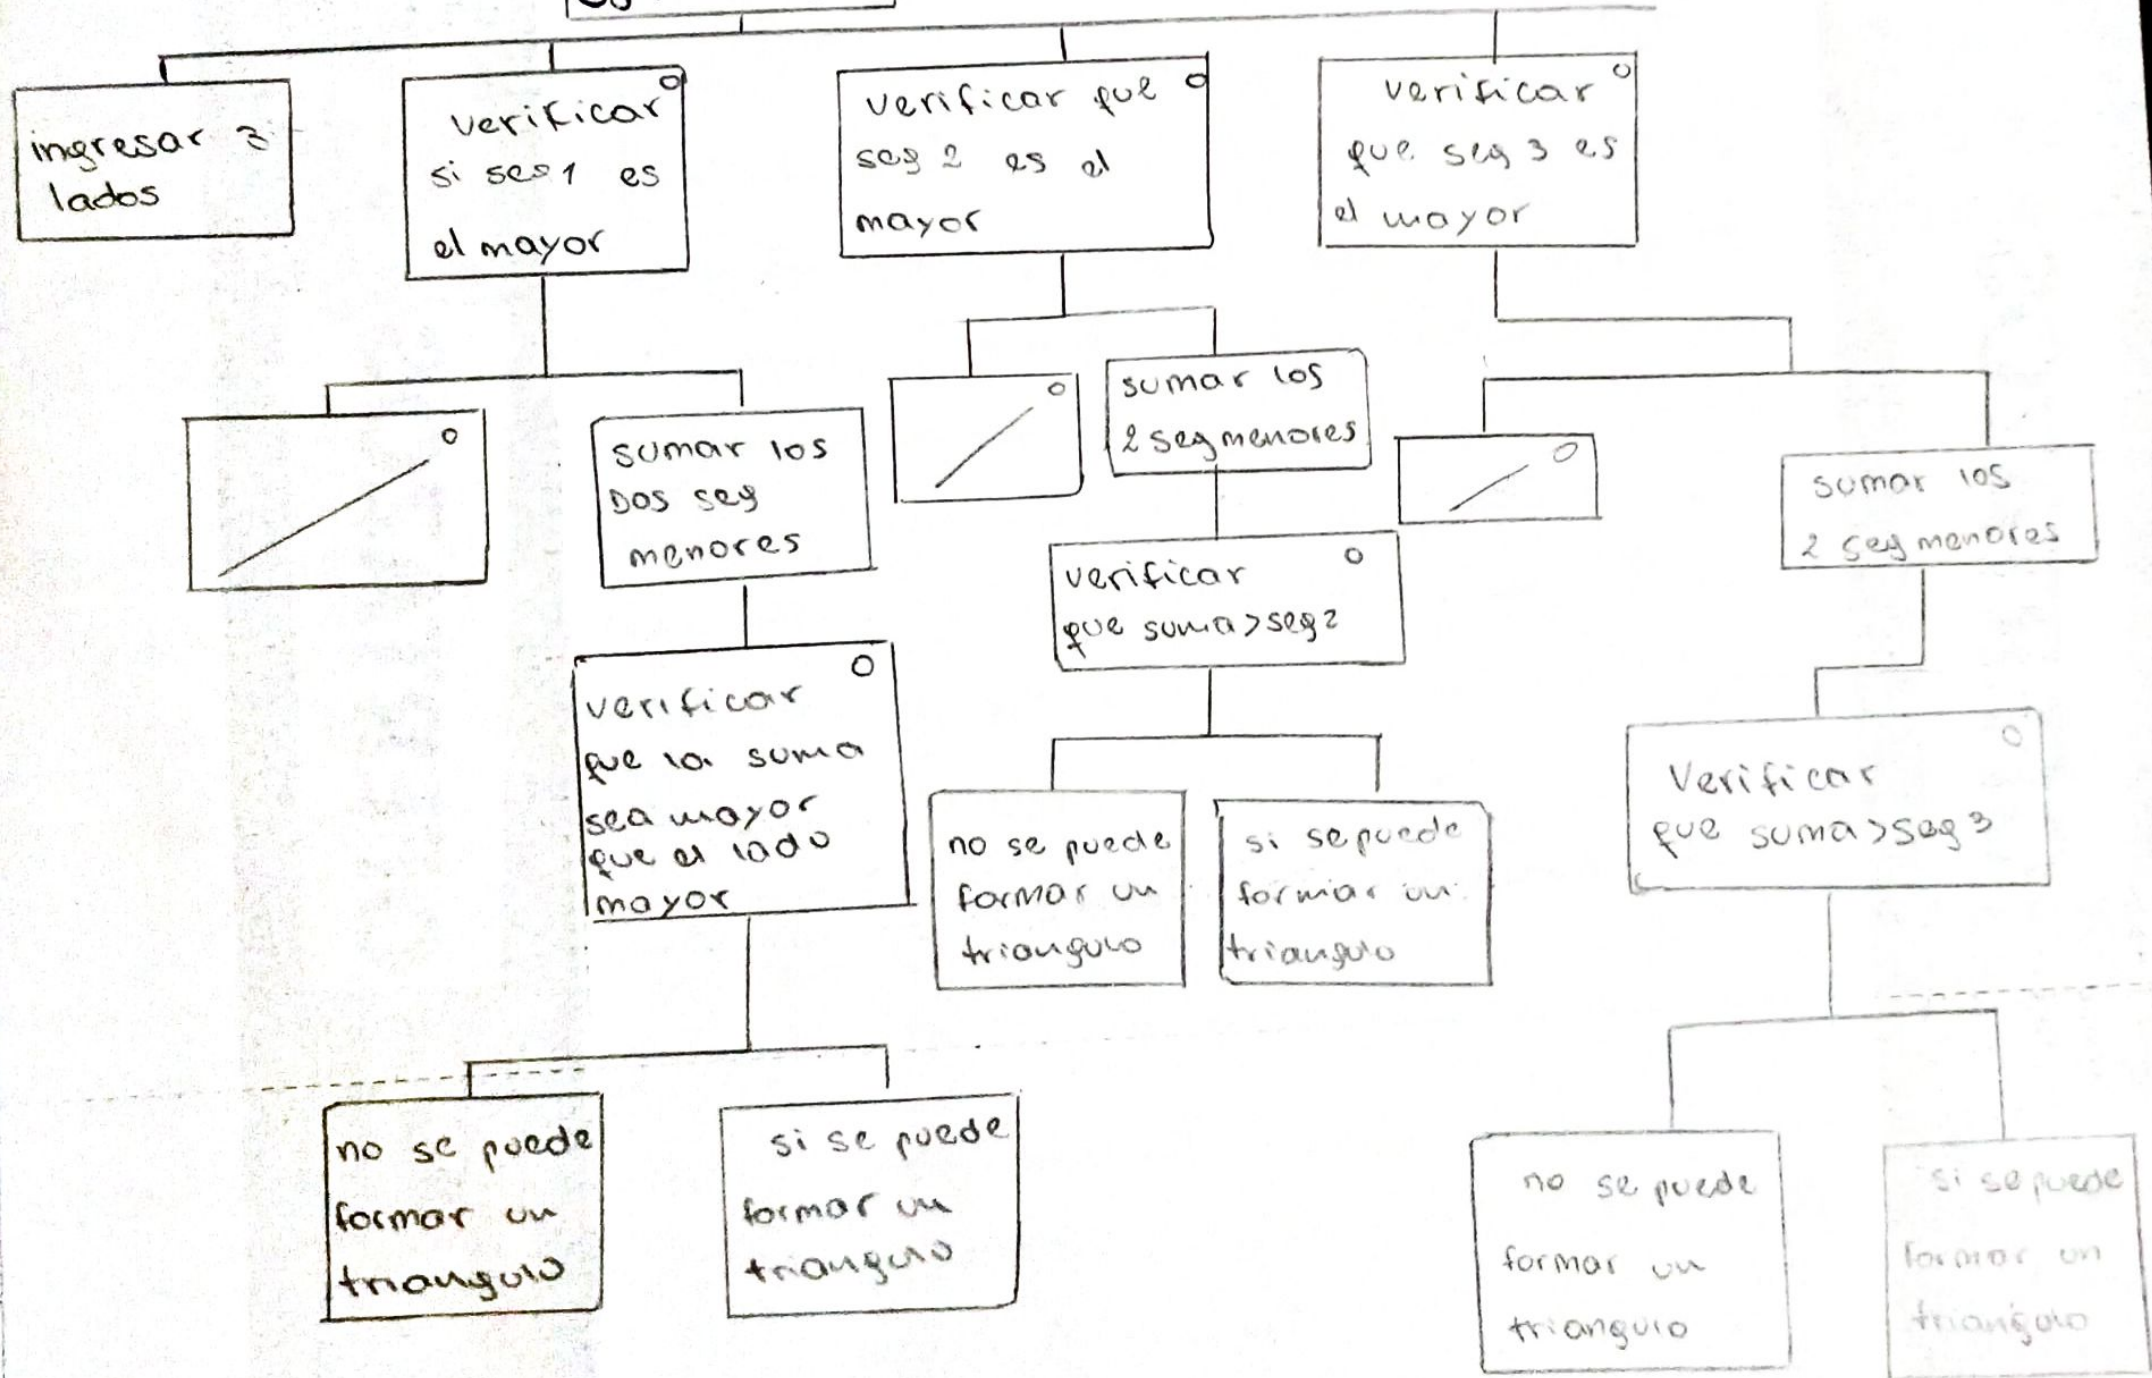 ingresar 3
lados
verificar
si seg 1 es
el mayor
verificar que
seg 2 es el
mayor
verificar
que seg 3 es
el mayor
sumar los
DOS seg
menores
sumar los
2 seg menores
sumar los
2 seg menores
verificar
que la suma
sea mayor
que el lado
mayor
verificar
que suma>seg2
Verificar
que suma>seg3
no se puede
formar un
triangulo
si se puede
formar un
triangulo
no se puede
formar un
triangulo
si se puede
formar un
triangulo
no se puede
formar un
triangulo
si se puede
formar un
triangulo